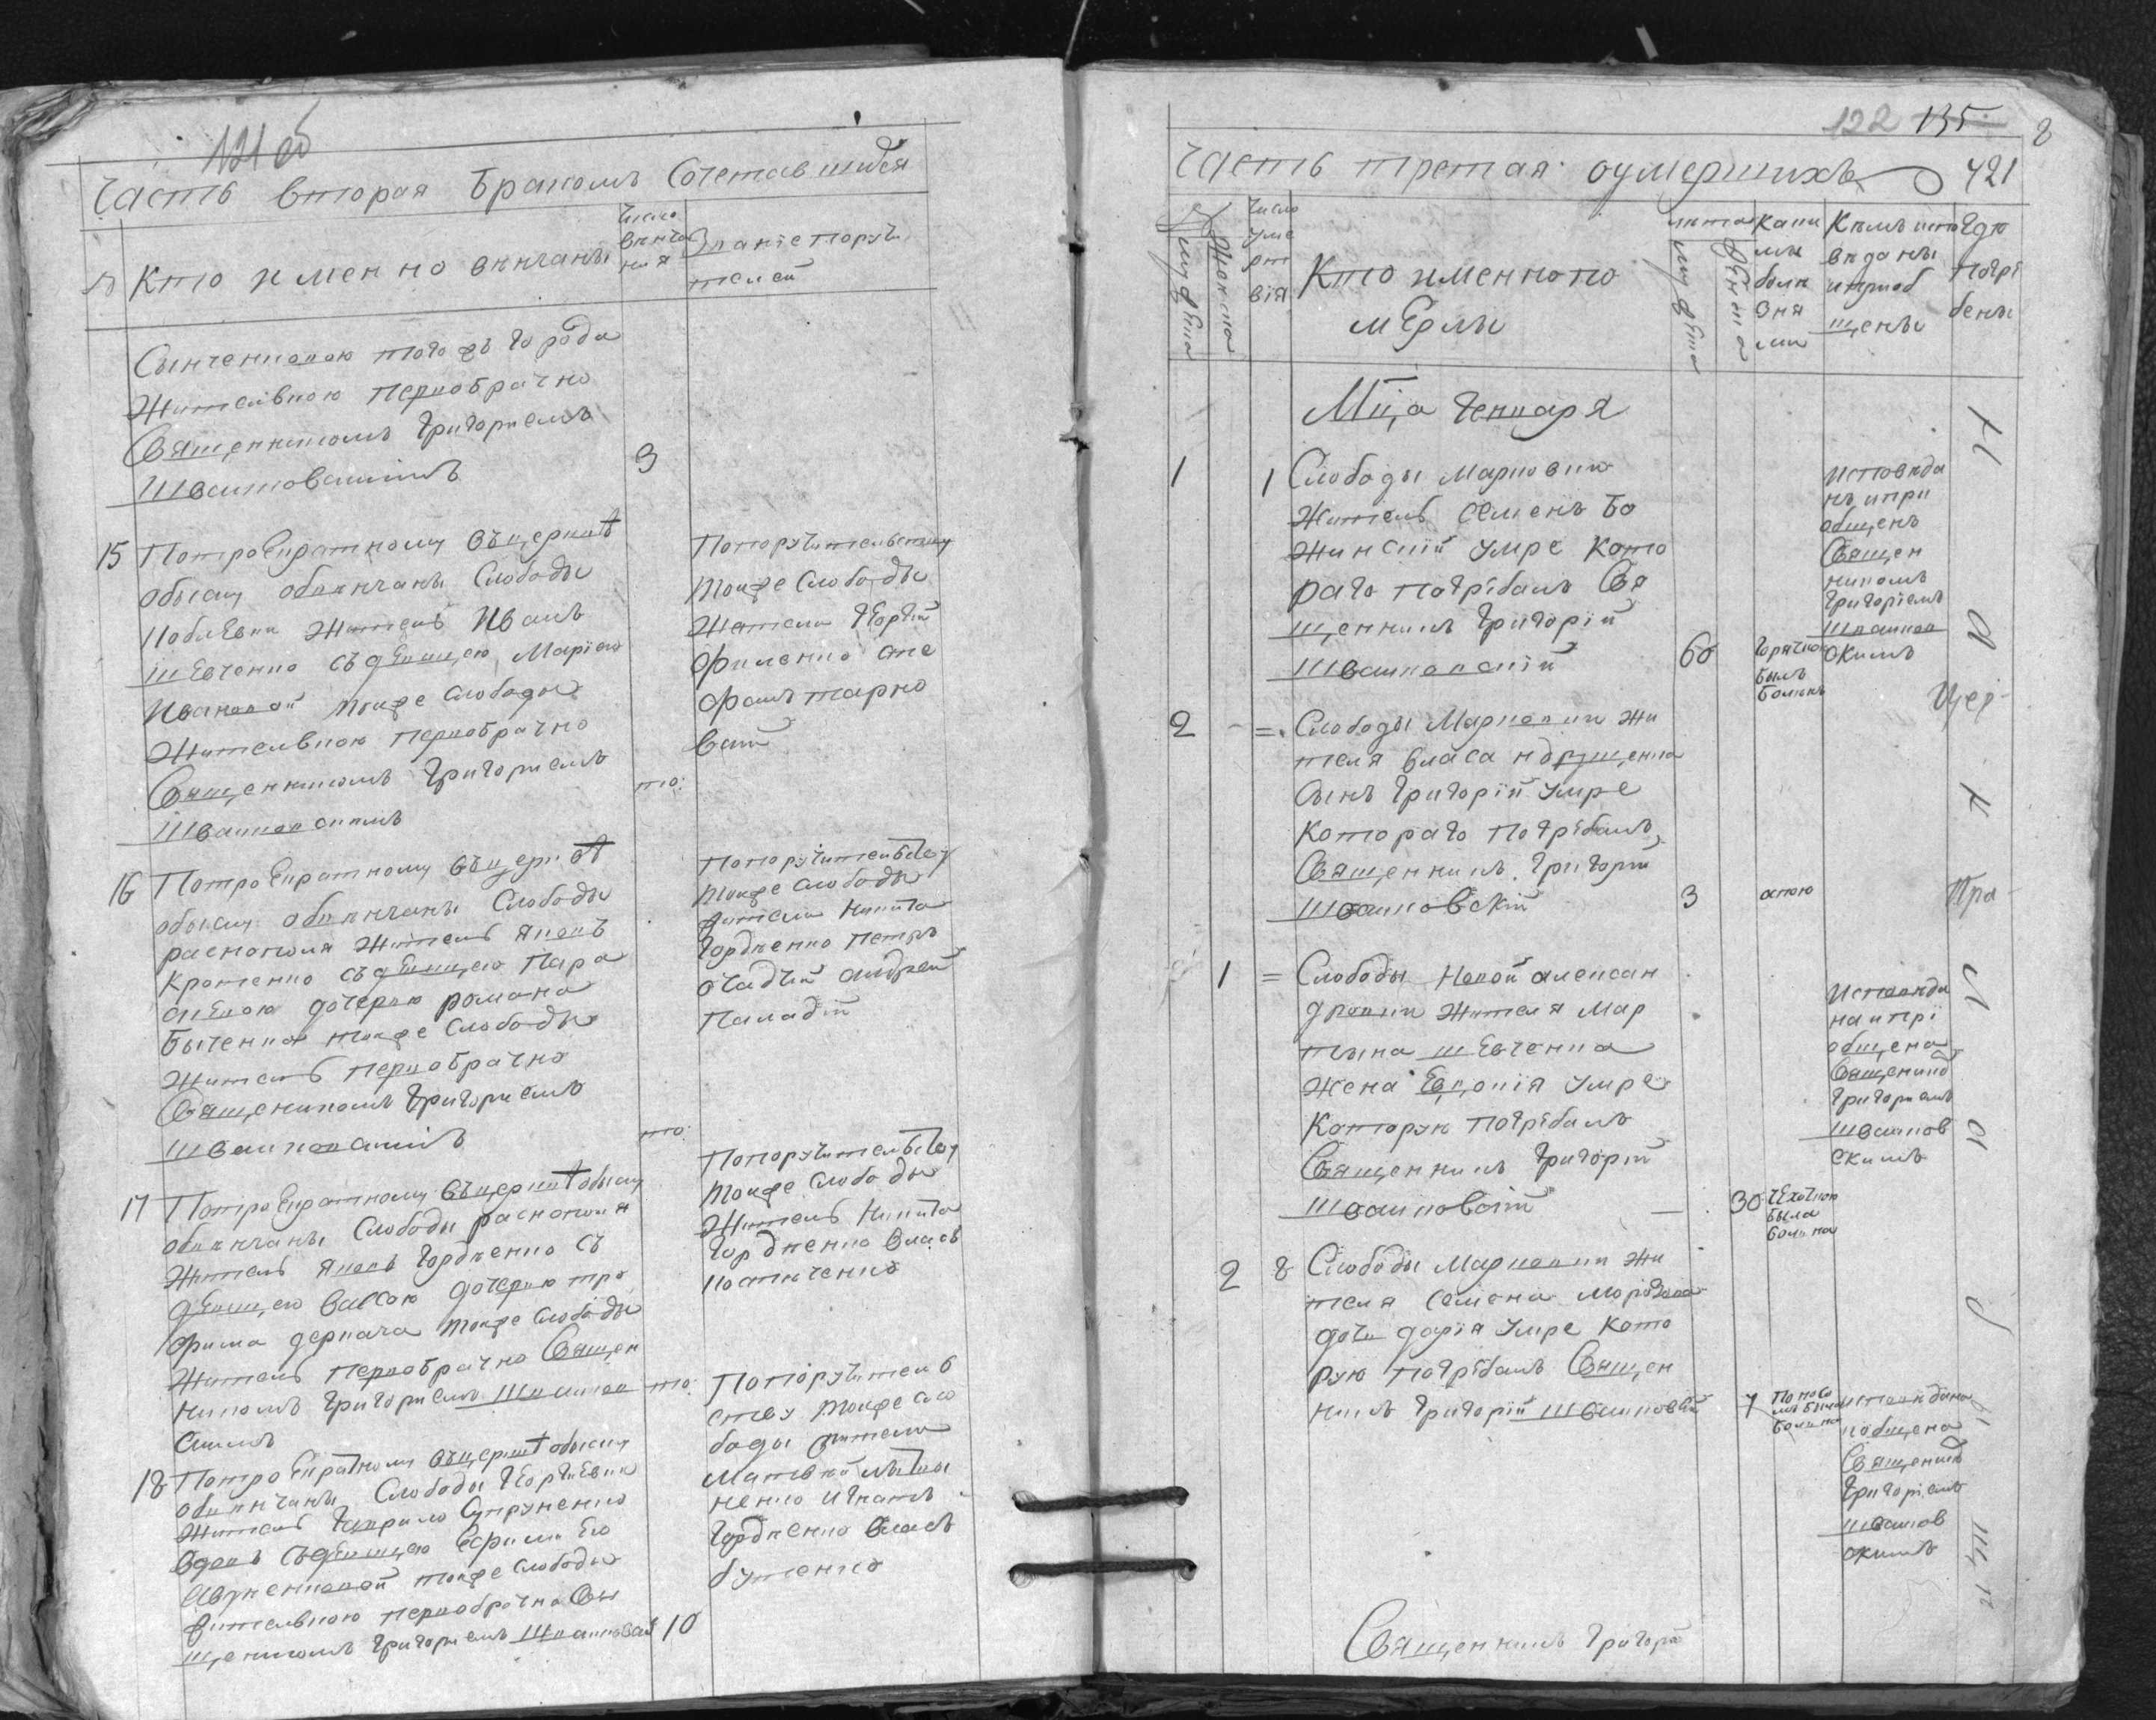 121 об
Часть вторая Бракомъ Сочетавшихся
Кто именно венчаны
Число венча ния
Званіе поручи
телей
Сынченковою того жъ города
Жителвкою первобрачно
Священникомъ Григориемъ
Шванковскимъ
3
15 Потроекратному въ церкве
обыску обвенчаны Слободы
Житель Иванъ
Шевченко съ девицею Маріею
Ивановой тояже Слободы
Жителвкою первобрачно
Священникомъ Григориемъ
Шванковскимъ
то:
Попоручителству
тояже Слободы
Жители Георгій
Фоменко Сте
фанъ тарно
вскій
16 Потроекратному въ церкве
обыску обвенчаны Слободы
располя Житель Яковъ
Кротенко съ девицею Пара
скевою дочерью романа
Быченка тояже Слободы
Житель первобрачно
Священикомъ Григориемъ
Шванковскимъ
то:
Попоручителству
тояже Слободы
жители Никита
Гордиенко Петръ
Осадчій Андрей
Паладій
17 Потроекратному въ церкве обыску
обвенчаны Слободы располя
Житель Яковъ Гордиенко съ
девицею Вассою дочерью тро
фима деркача тояже Слободы
Житель первобрачно Священ
никомъ Григориемъ Шванков
скимъ
то:
Попоручителству
тояже Слободы
Житель Никита
Гордиенко Власъ
18 Потроекратному въ церкве обыску
обвенчаны Слободы Георгиевки
Житель Гаврило Супруненко
вдовъ съ девицею
тояже Слободы
жителвкою первобрачно Свя
щеникомъ Григориемъ Шванковски 10
Попоручитель
ству тояже Сло
боды жители
Матвей
ненко Игнатъ
Гордиенко Власъ
бутенко
122 135 8
Часть третая оумершихъ 421
мужеска
женска
Число
уме
рт
вія
Кто именно по
мерлы
лета
мужеска
женска
Каки
мы
боле
зня
ми
Кемъ испо
веданы
и приоб
щены
Где
погре
бены
Мца Генваря
1 1 Слободы Марковки
Житель Семенъ Бо
жинскій умре кото
раго погрѣбалъ Свя
щенникъ Григорій
Шванковскій
60
Горячкою
былъ
боленъ
исповеда
нъ и при
общенъ
Священ
никомъ
Григоріемъ
Шванков
скимъ
2 = Слободы Марковки жи
теля Власа
Сынъ Григорій умре
котораго погрѣбалъ
Священникъ Григорій
Шванковскій
3
оспою
1 = Слободы Новой алексан
дровки Жителя Мар
тына Шевченка
жена умре
которую погрѣбалъ
Священникъ Григорій
Шванковскій
30
была
болна
исповеда
на и прі
общена
Священико
Григориемъ
Шванков
скимъ
2 8 Слободы Марковки жи
теля Семена Морозова
дочь дарія умре кото
рую погрѣбалъ Священ
никъ Григорій Шванковскій
7
Поносо
мъ была
болна
исповедана
іобщена
Священико
Григоріемъ
Шванков
скимъ
На
цер
Священникъ Григорій